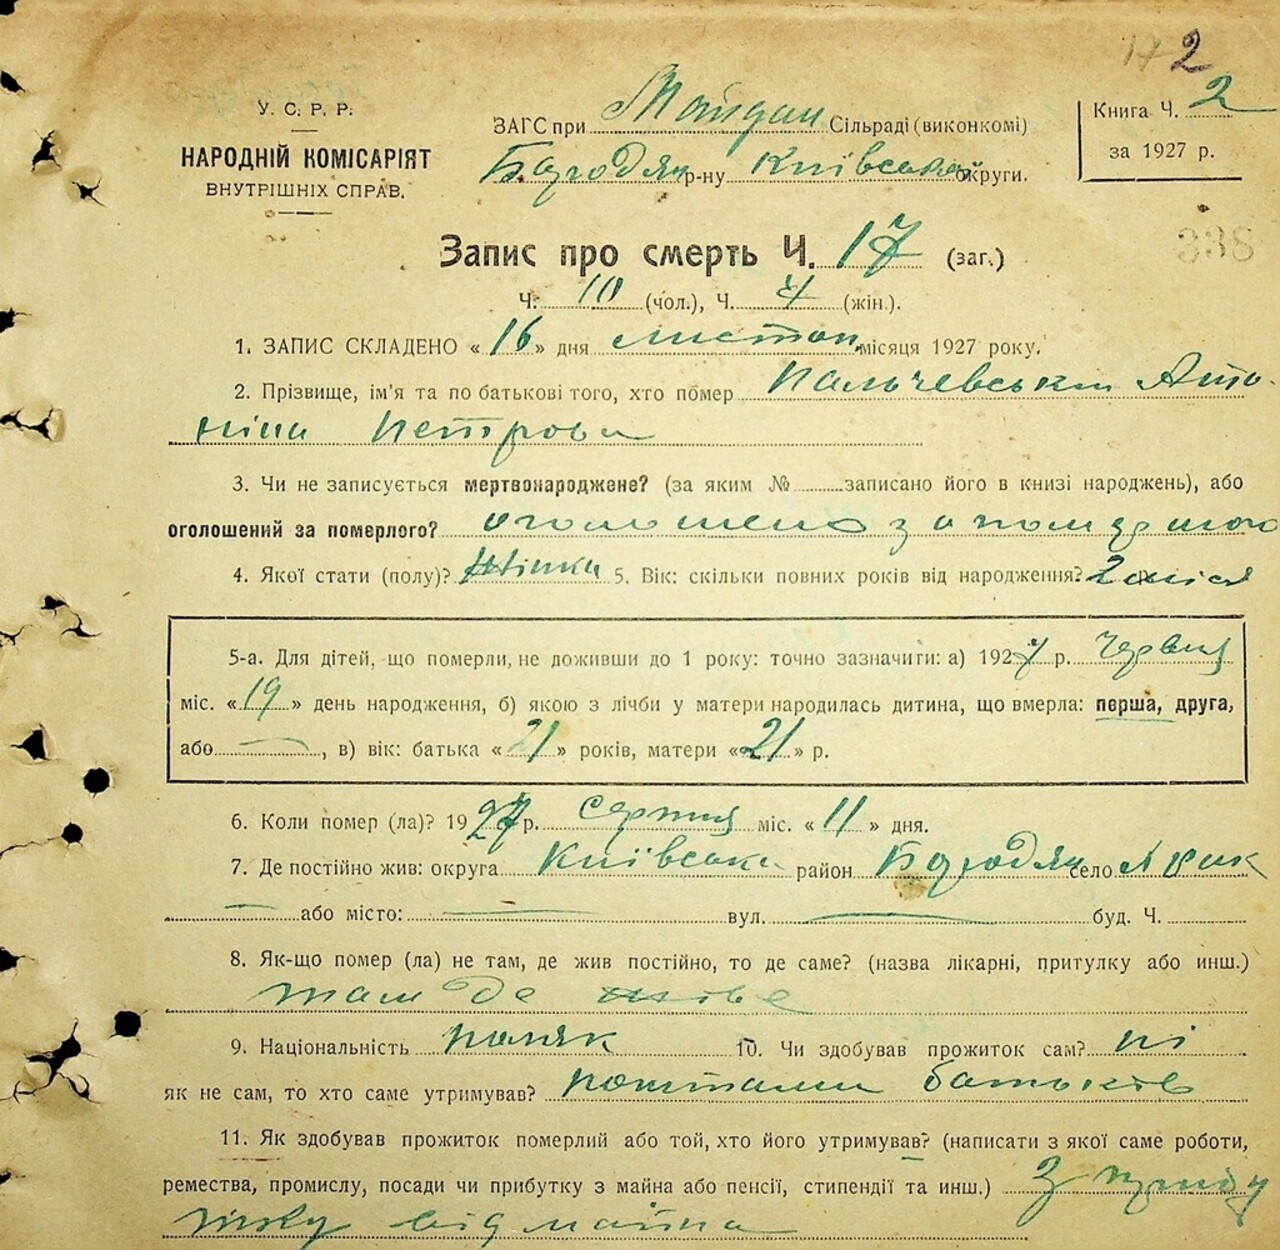 2
У. С. Р. Р.
НАРОДНІЙ КОМІСАРІЯТ
ВНУТРІШНІХ СПРАВ.
ЗАГС при Майдан Сільраді (виконкомі)
Бородян р-ну Київської округи.
Книга Ч. 2
за 1927 р.
338
Запис про смерть Ч. 17 (заг.)
Ч. 10 (чол.), Ч. 7 (жін.).
1. ЗАПИС СКЛАДЕНО « 16 » дня листоп. місяця 1927 року.
2. Прізвище, ім'я та по батькові того, хто помер Пальчевська Анто-
ніна Петрова
3. Чи не записується мертвонароджене? (за яким № записано його в книзі народжень), або
оголошений за померлого? оголошено за померлого
4. Якої стати (полу)? Жінка 5. Вік: скільки повних років від народження? 2 міся
5-а. Для дітей, що померли, не доживши до 1 року: точно зазначити: а) 1927 р. червня
міс. « 19 » день народження, б) якою з лічби у матери народилась дитина, що вмерла: перша, друга,
або — , в) вік: батька « 21 » років, матери « 21 » р.
6. Коли помер (ла)? 1927 р. Серпня міс. « 11 » дня.
7. Де постійно жив: округа Київська район Бородян село
— або місто: — вул. — буд. Ч.
8. Як-що помер (ла) не там, де жив постійно, то де саме? (назва лікарні, притулку або инш.)
там де живе
9. Національність поляк 10. Чи здобував прожиток сам? ні
як не сам, то хто саме утримував? коштами батьків
11. Як здобував прожиток померлий або той, хто його утримував? (написати з якої саме роботи,
ремества, промислу, посади чи прибутку з майна або пенсії, стипендії та инш.) З прибу
тку від майна